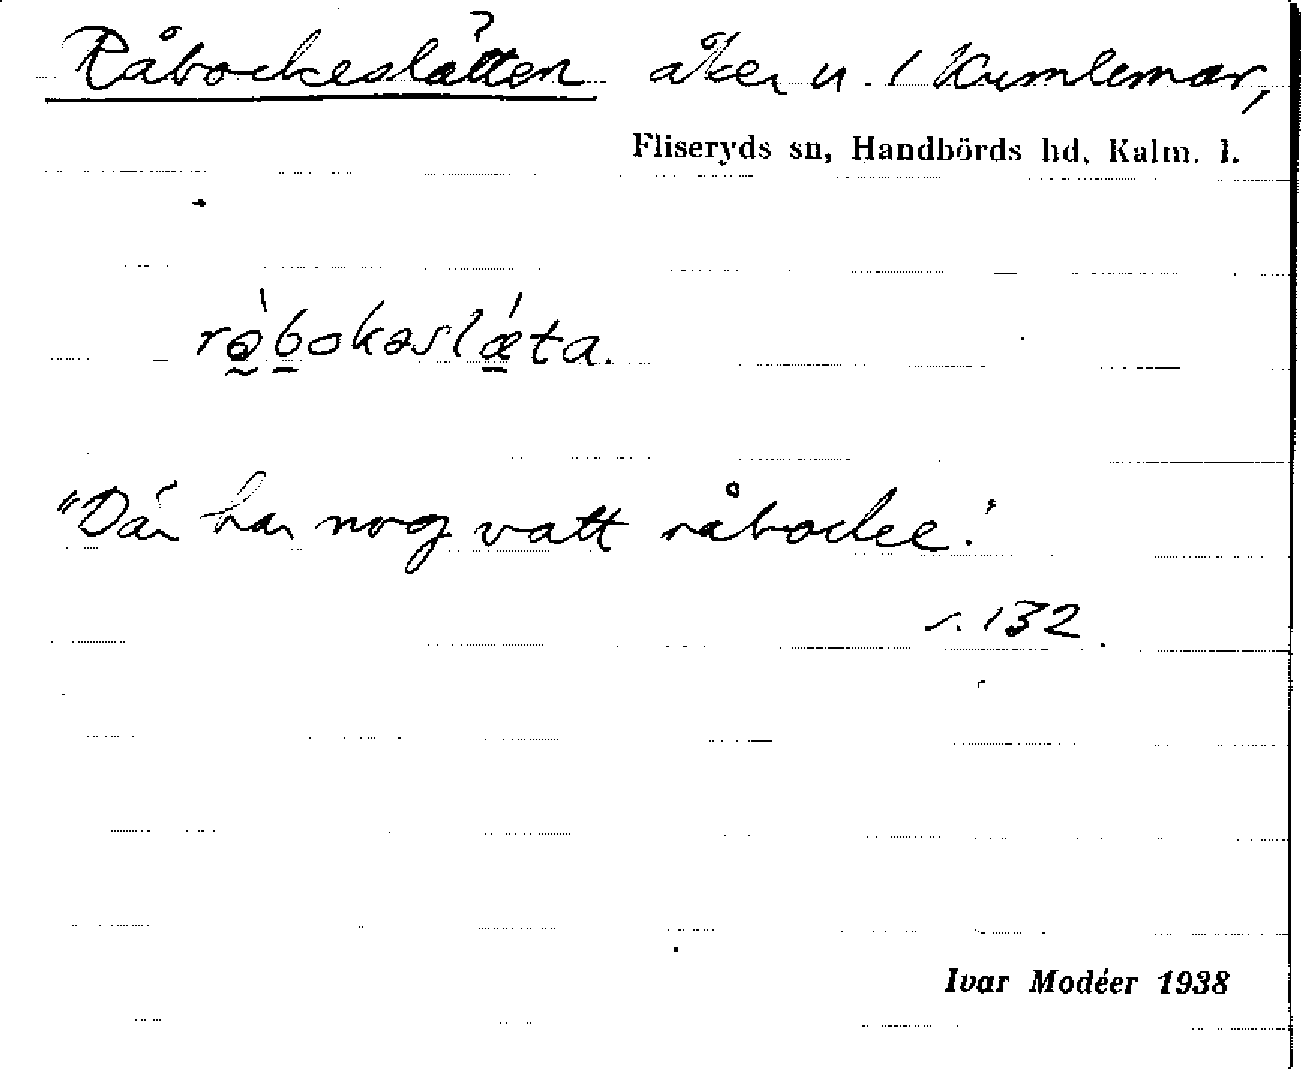 Råbockeslätten? åker u. 1 Kumlemar,
Fliseryds sn, Handbörds hd, Kalm. l.
rə̀bokəslǽta.
"Där har nog vatt råbocke."
s. 132
Ivar Modéer 1938